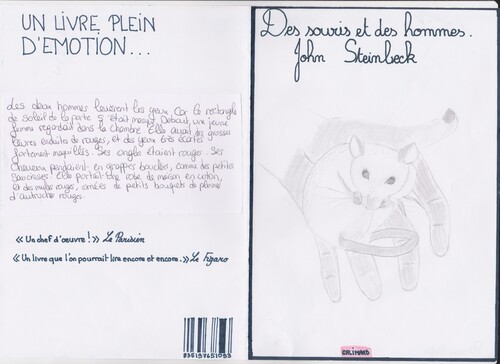 UN LIVRE PLEIN
D'EMOTION...
Les deux hommes levèrent les yeux. Car le rectangle
de soleil de la porte s'était masqué. Debout, une jeune
femme regardait dans la chambre. Elle avait de grosses
lèvres enduites de rouge, et des yeux très écartés
fortement maquillés. Ses ongles étaient rouges. Ses
cheveux pendaient en grappes bouclées, comme des petites
saucisses. Elle portait une robe de maison en coton,
et des mules rouges, ornées de petits bouquets de plumes
d'autruche rouges.
« Un chef d'œuvre ! » Le Parisien
« Un livre que l'on pourrait lire encore et encore. » Le Figaro
Des souris et des hommes.
John Steinbeck
GALIMARD